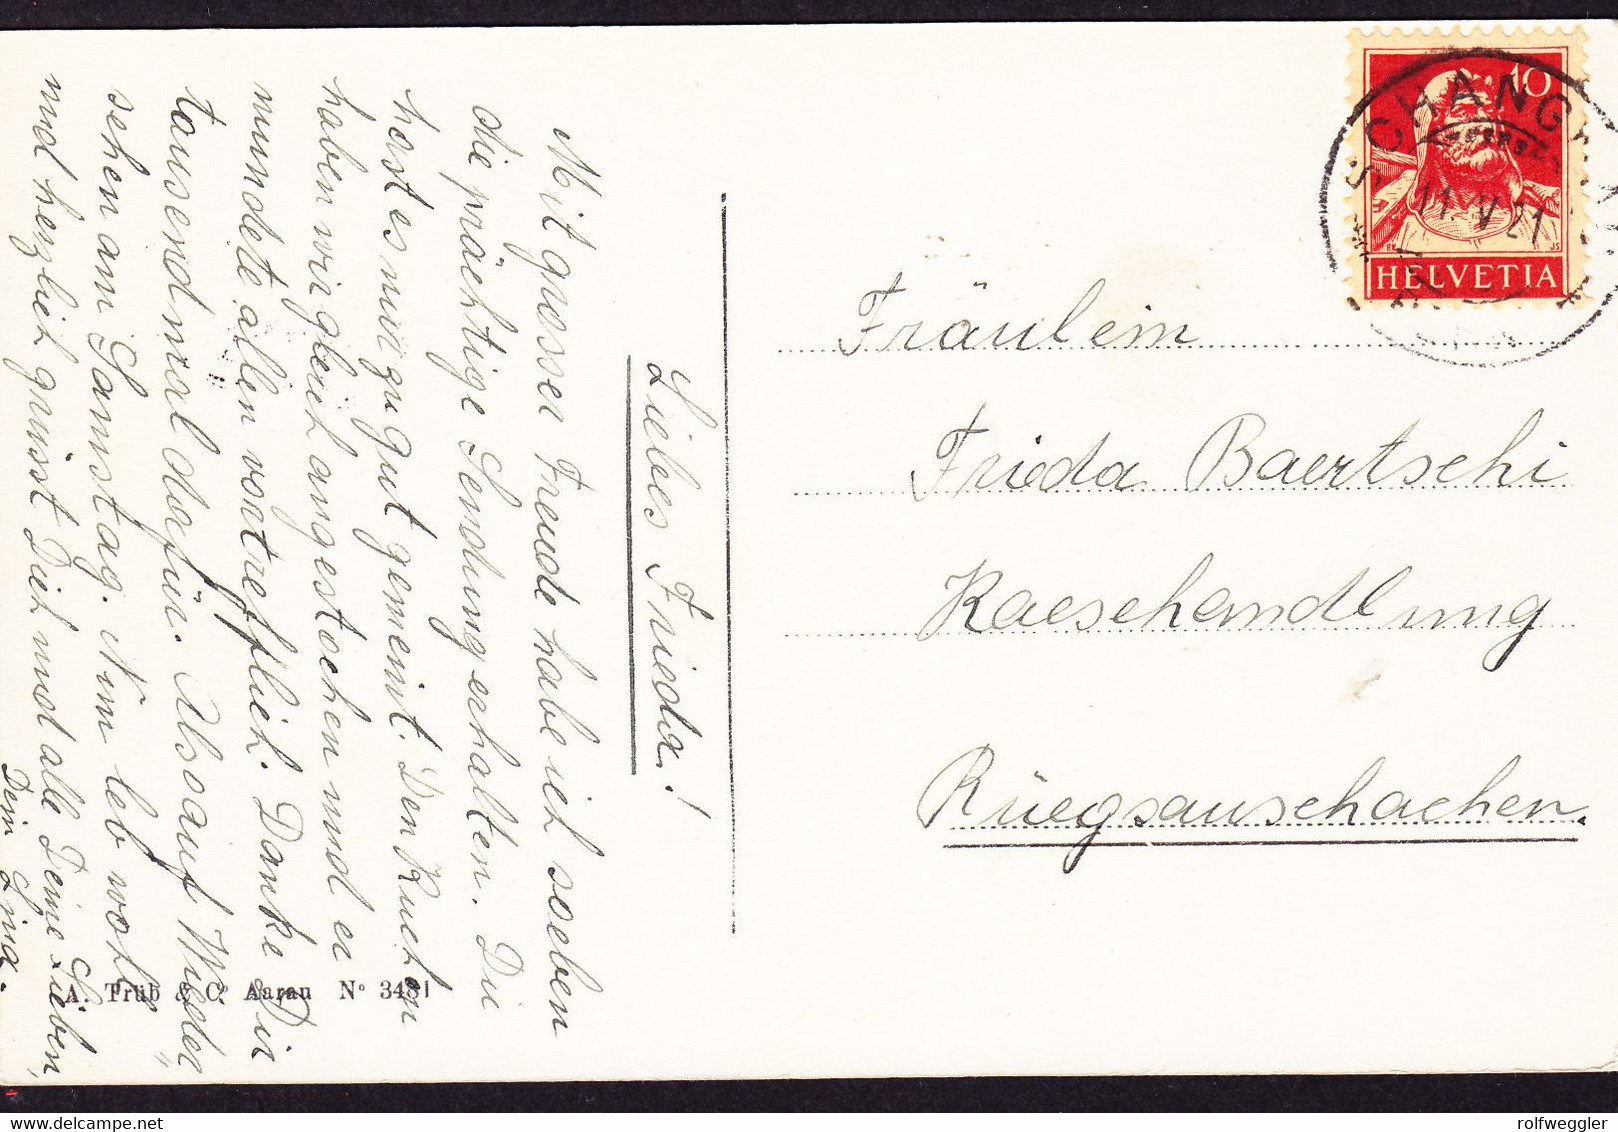 Liebes Frieda!
Mit grosser Freude habe ich soeben
die prächtige Sendung erhalten. Du
hast es nur zu gut gemeint. Den Kuchen
haben wir gleich angestochen und er
mundete allen vortrefflich. Danke Dir
tausendmal dafür. Also auf Wieder„
sehen am Samstag. Nun leb wohl
und herzlich grüsst Dich und alle Deine Lieben,
Dein Lina.
A. Trüb & C. Aarau N° 3491
10
HELVETIA
11. V 21
Fräulein
Frieda Baertschi
Kaesehandlung
Rüegsauschachen.
www.delcampe.net
rolfweggler